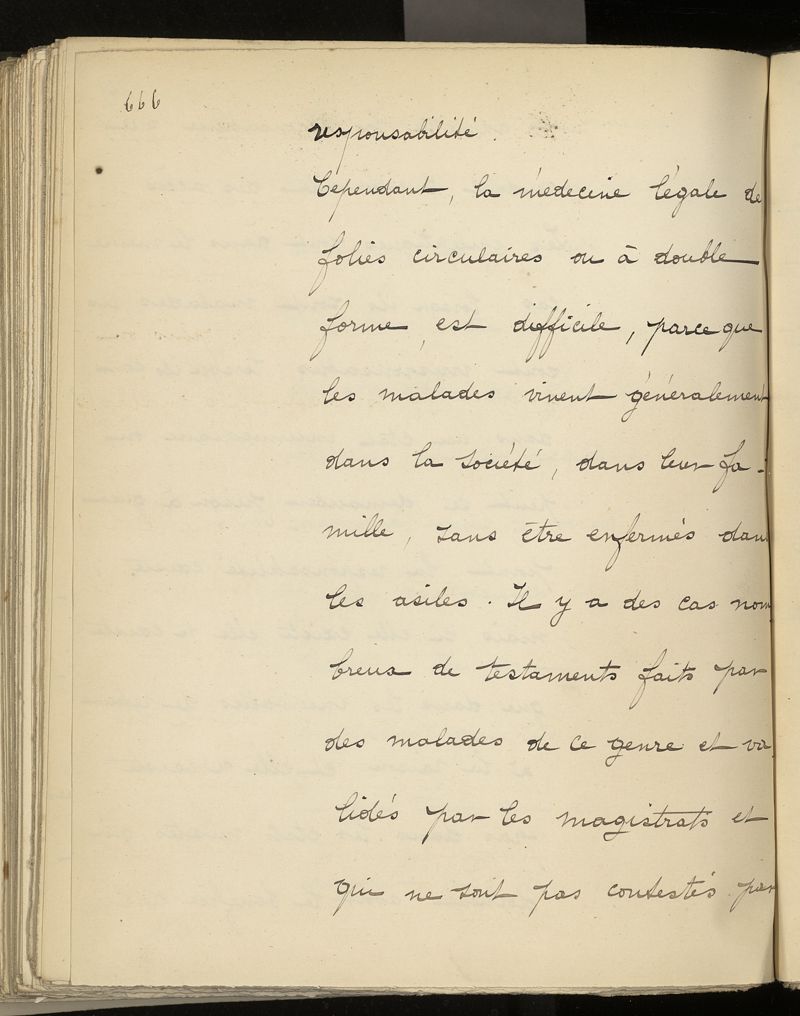 666
responsabilité.
Cependant, la médecine légale de
folies circulaires ou à double
forme, est difficile, parceque
les malades vivent généralement
dans la société, dans leur fa-
mille, sans être enfermés dans
les asiles. Il y a des cas nom
breux de testaments faits par
des malades de ce genre et va
lidés par les magistrats et
qui ne sont pas contestés par